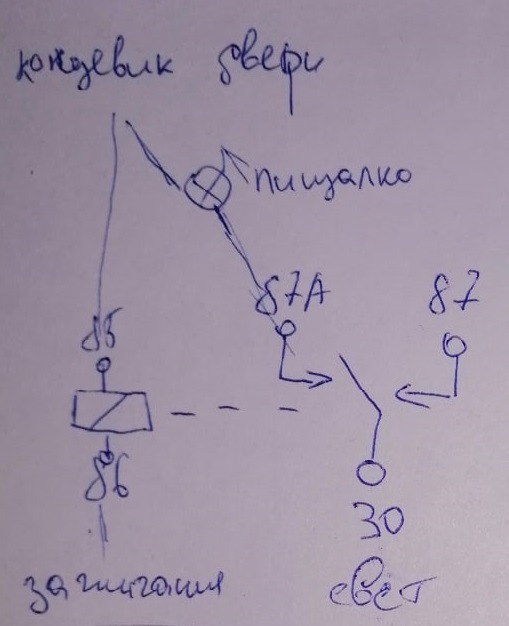 концевик двери
пищалко
87А 87
85
86
30
зажигания свет